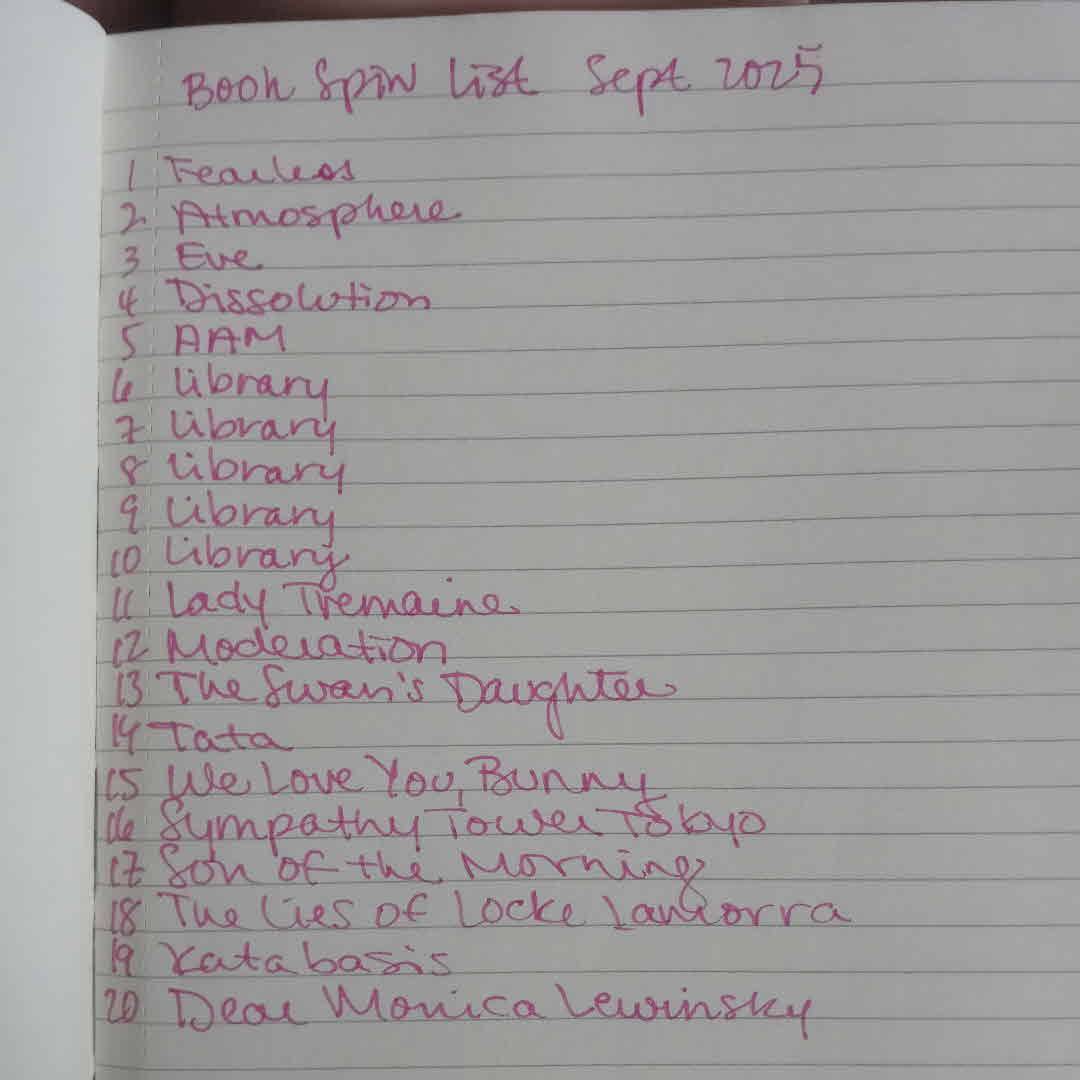 Book Spin List Sept 2025
1 Fearless
2 Atmosphere
3 Eve
4 Dissolution
5 AAM
6 Library
7 Library
8 Library
9 Library
10 Library
11 Lady Tremaine
12 Moderation
13 The Swan's Daughter
14 Tata
15 We Love You, Bunny
16 Sympathy Tower Tokyo
17 Son of the Morning
18 The Lies of Locke Lamorra
19 Katabasis
20 Dear Monica Lewinsky